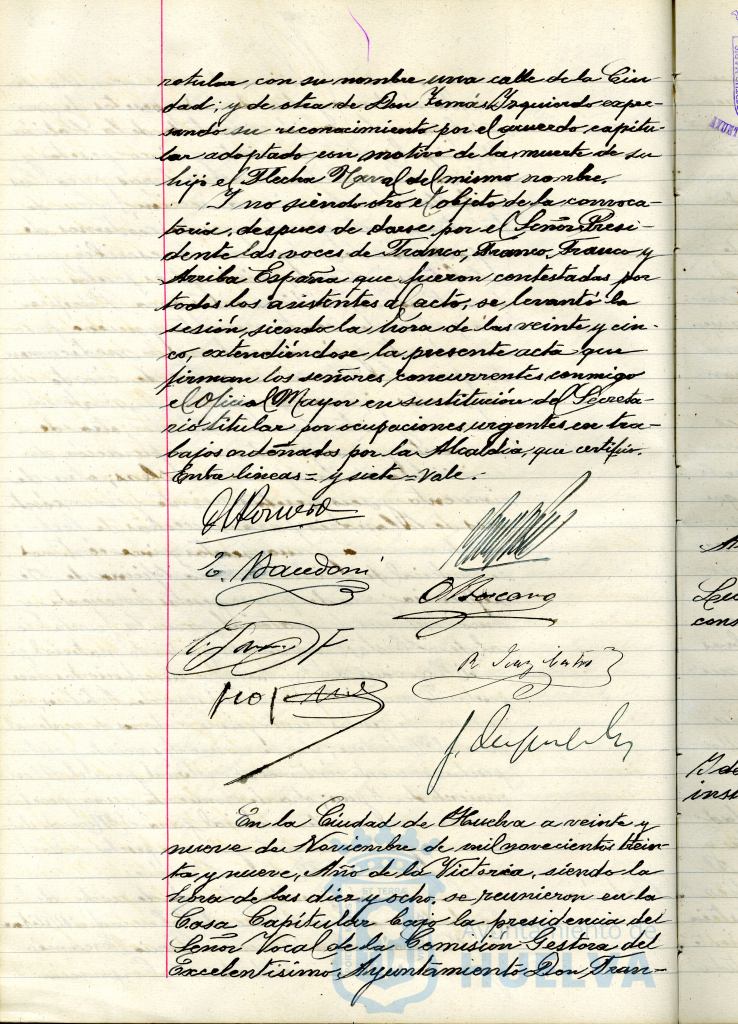 rotular con su nombre una calle de la Ciu-
dad; y de otra de Don Tomás Izquierdo expre-
sando su reconocimiento por el acuerdo capitu-
lar adoptado con motivo de la muerte de su
hijo el Flecha Naval del mismo nombre.
Y no siendo otro el objeto de la convoca-
toria, despues de darse por el Señor Presi-
dente las voces de Franco, Franco, Franco y
Arriba España que fueron contestadas por
todos los asistentes al acto, se levantó la
sesión, siendo la hora de las veinte y cin-
co, extendiéndose la presente acta que
firman los señores concurrentes conmigo
el Oficial Mayor en sustitución del Secreta-
rio titular por ocupaciones urgentes en tra-
bajos ordenados por la Alcaldia, que certifico.
Entre lineas = y siete = Vale.
E. Macedoni
En la Ciudad de Huelva a veinte y
nueve de Noviembre de mil novecientos trein-
ta y nueve, Año de la Victoria, siendo la
hora de las diez y ocho, se reunieron en la
Casa Capitular bajo la presidencia del
Señor Vocal de la Comisión Gestora del
Excelentisimo Ayuntamiento Don Fran-
Ayuntamiento de
HUELVA